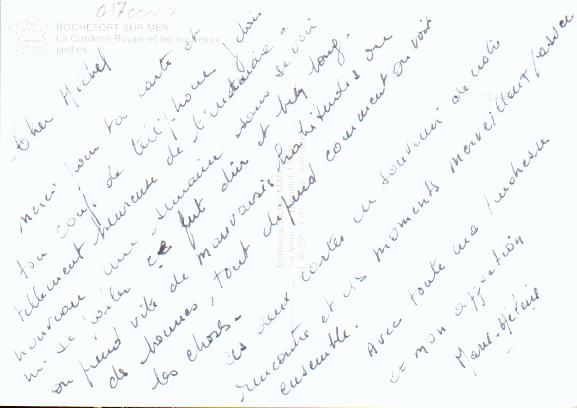 01700063
ROCHEFORT SUR MER
La Corderie Royale et les nouveaux
jardins.
Cher Michel
Merci pour ta carte et
ton coup de téléphone, j'étais
tellement heureuse de t'entendre à
nouveau, une semaine sans se voir
ni se visiter ce fut dur et bien long.
on prend vite de mauvaises habitudes ou
de bonnes, tout dépend comment on voit
les choses.
ces deux cartes en souvenir de notre
rencontre et des moments merveilleux passés
ensemble.
Avec toute ma tendresse
et mon affection
Marie-Hélène